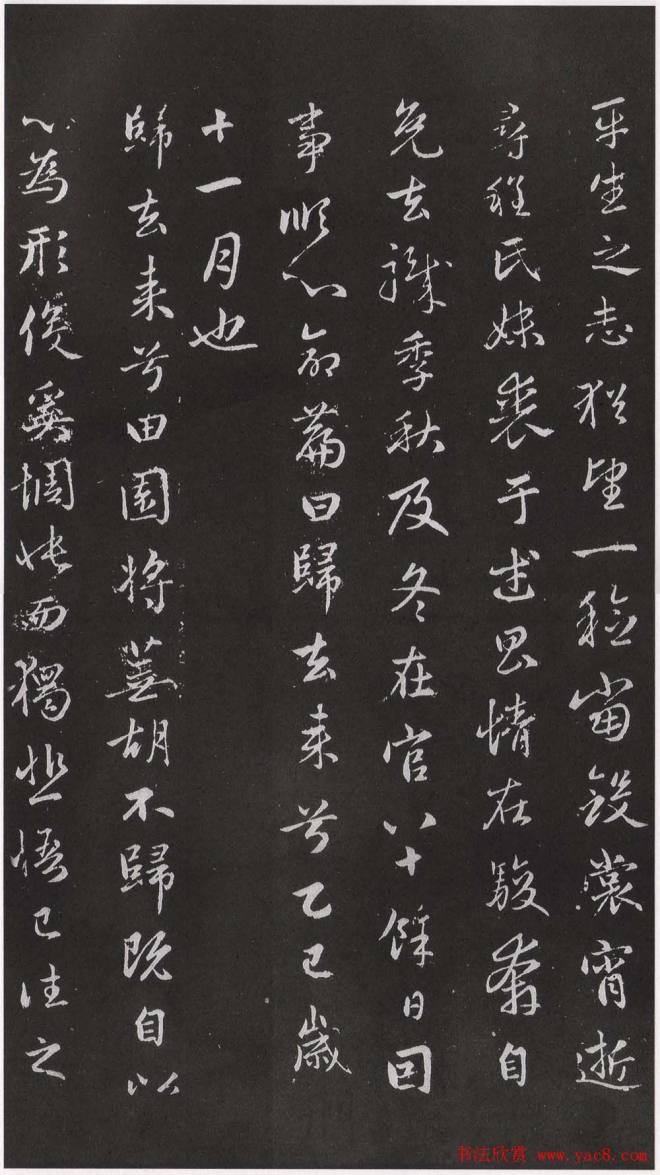 平生之志猶望一稔當斂裳宵逝
尋程氏妹喪于武昌情在駿奔自
免去職季秋及冬在官八十餘日因
事順心命篇曰歸去來兮乙巳歲
十一月也
歸去來兮田園將蕪胡不歸既自以
心為形役奚惆悵而獨悲悟已往之
书法欣赏 www.yac8.com